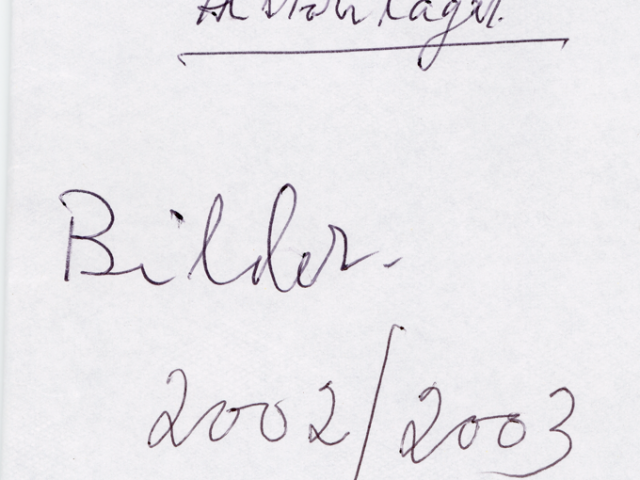 Bilder.
2002/2003